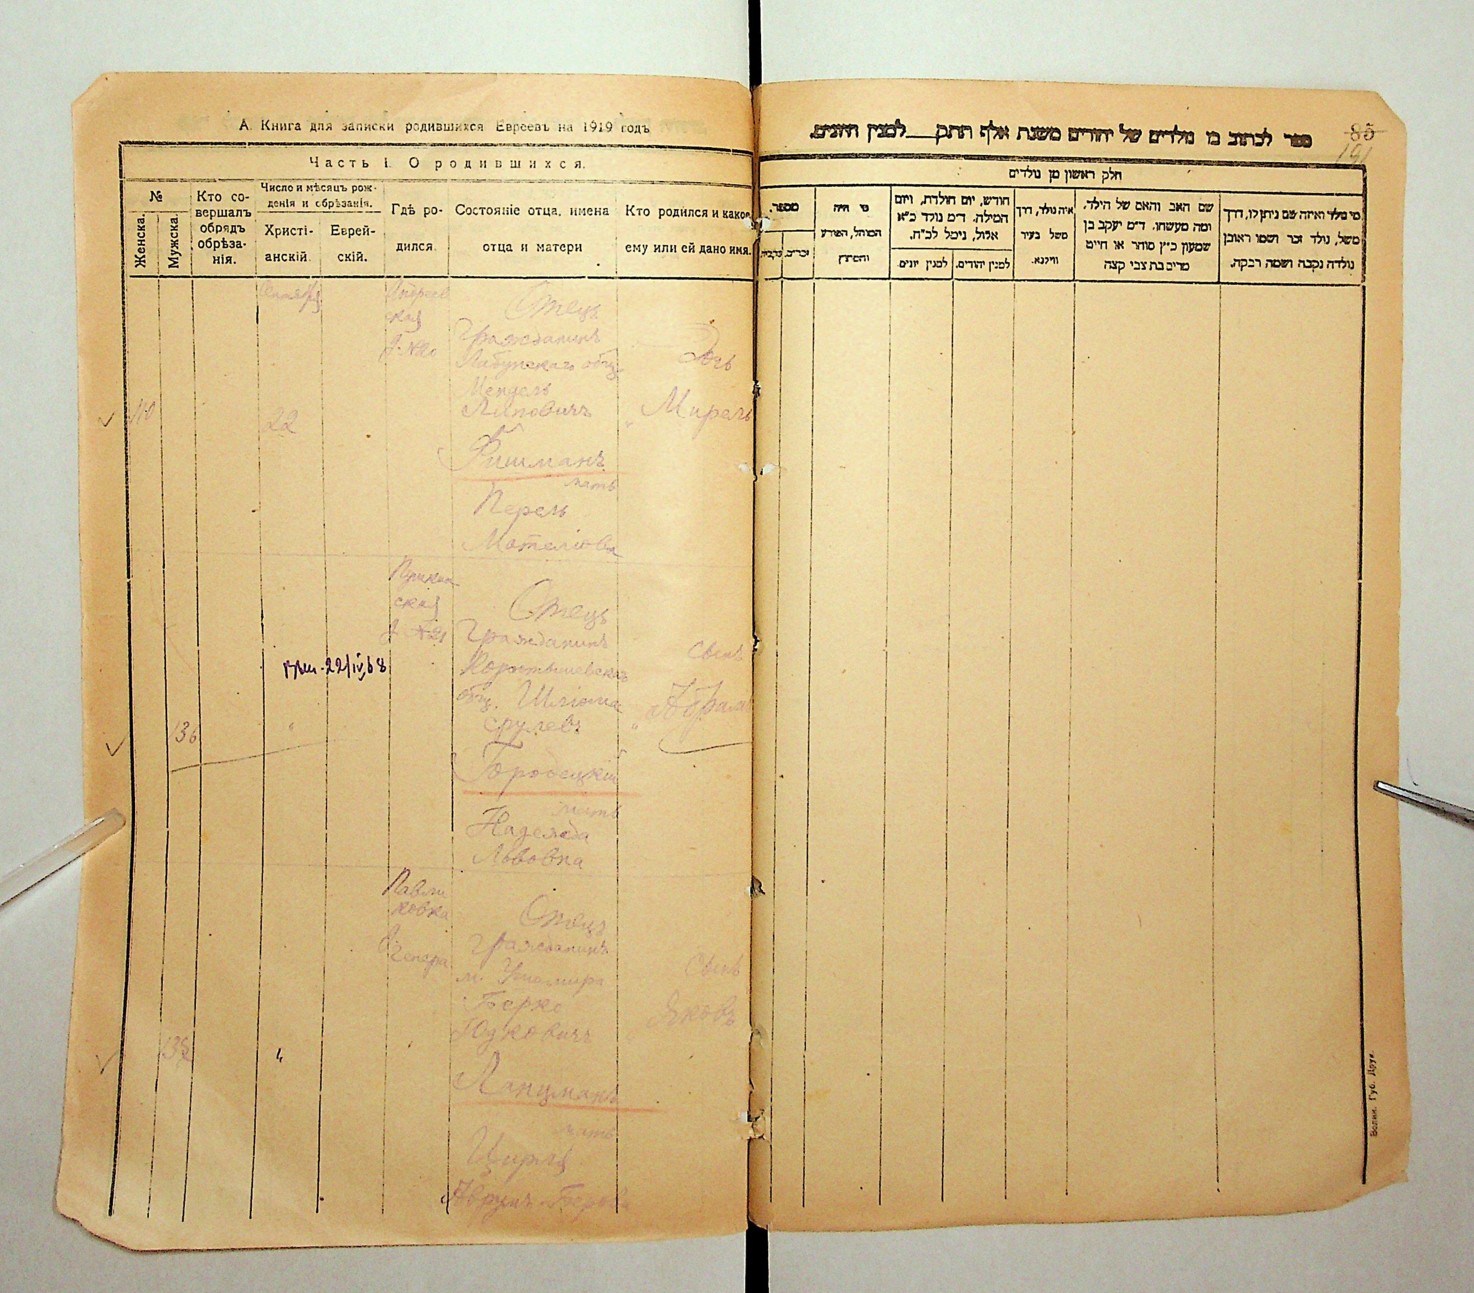 А. Книга для записки родившихся Евреевъ на 1919 годъ
Часть I. О родившихся.
№
Женска.
Мужска.
Кто со-
вершалъ
обрядъ
обрѣза-
нія.
Число и мѣсяцъ рож-
денія и обрѣзанія.
Христі-
анскій.
Еврей-
скій.
Гдѣ ро-
дился.
Состояніе отца, имена
отца и матери
Кто родился и какое
ему или ей дано имя.
Отецъ
Гражданинъ
Мендель
Липовичъ
Фишманъ
мать
Перель
Дочь
Мирель
22
Отецъ
Гражданинъ
общ. Шліома
Срулевъ
Городецкій
мать
Надежда
Львовна
Сынъ
Абрамъ
22/IV 68
136
"
Павли
ковка
Отецъ
Гражданинъ
м. Ушомира
Берко
Юдковичъ
Ланцманъ
мать
Сынъ
Яковъ
137
"
ספר לכתוב בו נולדים של יהודים משנת אלף תתק___למנין היונים.
85
191
חלק ראשון מן נולדים
מספר.
זכרים.
נקבות
מי היה
המוהל, הפורע
והמוצץ
חודש, יום הולדת, ויום
המילה. ד״מ נולד כ״א
אלול, נימל לכ״ח.
למנין יונים.
למנין יהודים.
איה נולד, דרך
משל בעיר
ווילנא.
שם האב והאם של הילד.
ומה מעשהו. ד״מ יעקב בן
שמעון כ״ץ סוחר או חייט
מרים בת צבי קצה
מי נולד ואיזה שם ניתן לו, דרך
משל, נולד זכר ושמו ראובן
נולדה נקבה ושמה רבקה.
Волин. Губ. Друк.